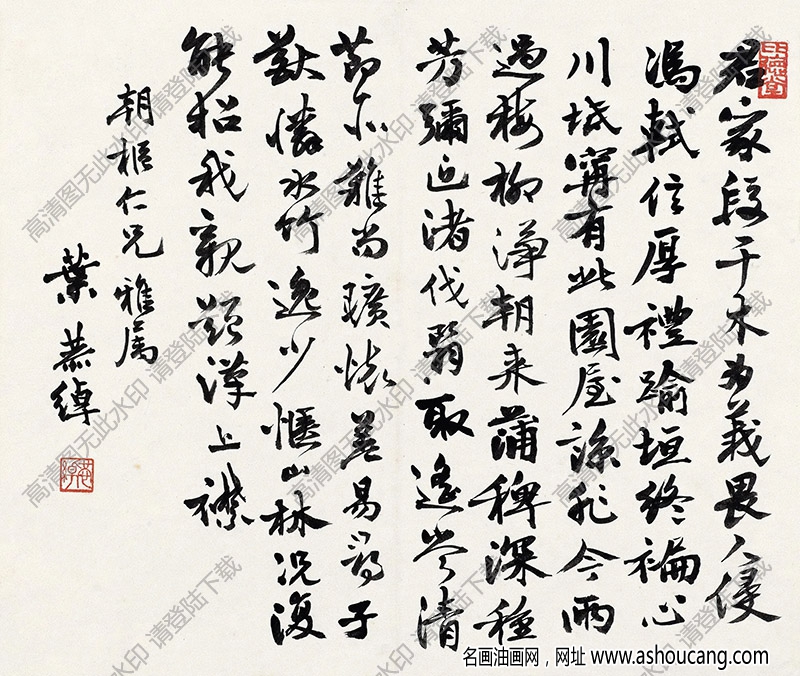 君家段干木為義畏人侵
馮軾信厚禮踰垣終褊心
川坻甯有此園屋諒非今雨
過梅柳淨朝来蒲稗深種
芳彌近渚伐翳取遙岑清
節亦難尚曠懷差易尋子
猷憐水竹逸少愜山林況復
能招我親題漢上襟
朝樞仁兄雅属
葉恭綽
高清图无此水印 请登陆下载
名画油画网，网址 www.ashoucang.com